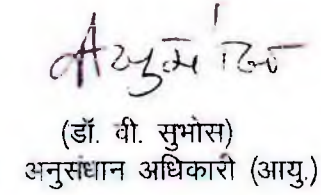 (डॉ. वी. सुभोस)
अनुसंधान अधिकारी (आयु.)